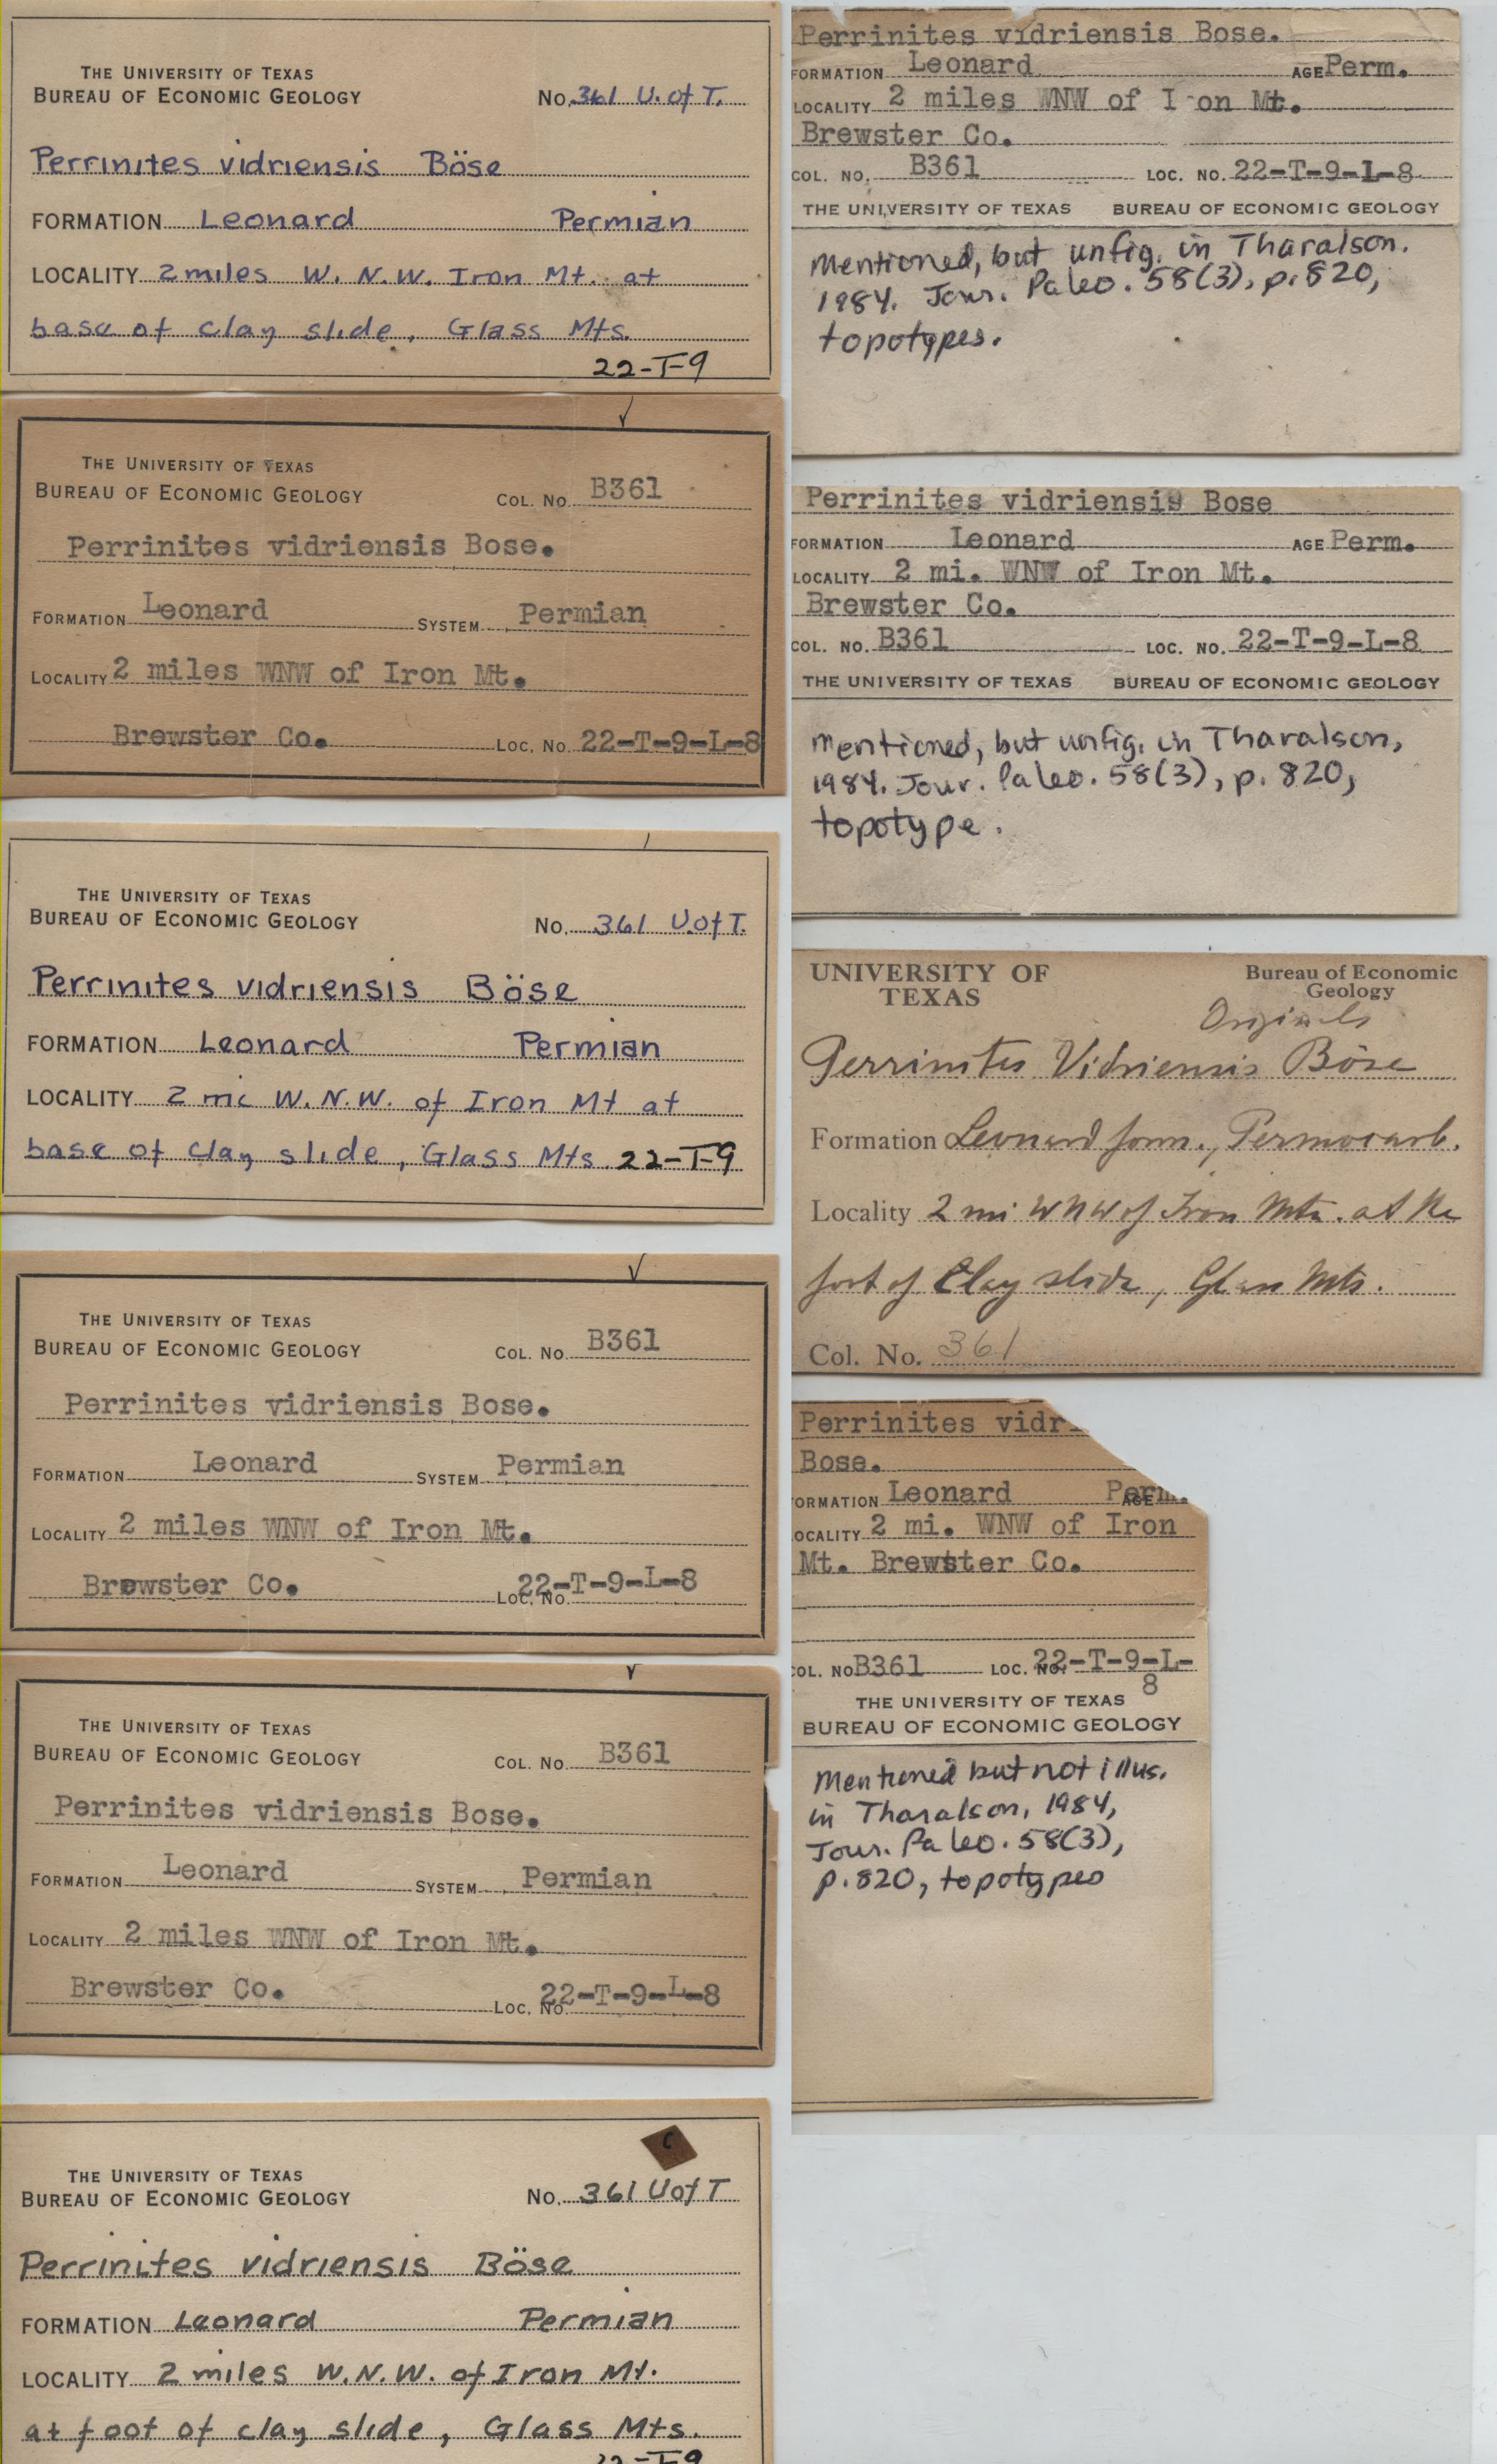 THE UNIVERSITY OF TEXAS
BUREAU OF ECONOMIC GEOLOGY No. 361 U. of T.
Perrinites vidriensis Böse
FORMATION Leonard Permian
LOCALITY 2 miles W. N.W. Iron Mt. at
base of clay slide, Glass Mts.
22-T-9
THE UNIVERSITY OF TEXAS
BUREAU OF ECONOMIC GEOLOGY COL. NO. B361
Perrinites vidriensis Bose.
FORMATION Leonard SYSTEM Permian
LOCALITY 2 miles WNW of Iron Mt.
Brewster Co. LOC. NO. 22-T-9-L-8
THE UNIVERSITY OF TEXAS
BUREAU OF ECONOMIC GEOLOGY No. 361 U.of T.
Perrinites vidriensis Böse
FORMATION Leonard Permian
LOCALITY 2 mi W.N.W. of Iron Mt at
base of clay slide, Glass Mts 22-T-9
THE UNIVERSITY OF TEXAS
BUREAU OF ECONOMIC GEOLOGY COL. NO. B361
Perrinites vidriensis Bose.
FORMATION Leonard SYSTEM Permian
LOCALITY 2 miles WNW of Iron Mt.
Brewster Co. LOC. NO. 22-T-9-L-8
THE UNIVERSITY OF TEXAS
BUREAU OF ECONOMIC GEOLOGY COL. NO. B361
Perrinites vidriensis Bose.
FORMATION Leonard SYSTEM Permian
LOCALITY 2 miles WNW of Iron Mt.
Brewster Co. LOC. NO. 22-T-9-L-8
C
THE UNIVERSITY OF TEXAS
BUREAU OF ECONOMIC GEOLOGY No. 361 U of T
Perrinites vidriensis Böse
FORMATION Leonard Permian
LOCALITY 2 miles W.N.W. of Iron Mt.
at foot of clay slide, Glass Mts.
22-T-9
Perrinites vidriensis Bose.
FORMATION Leonard AGE Perm.
LOCALITY 2 miles WNW of I on Mt.
Brewster Co.
COL. NO. B361 LOC. NO. 22-T-9-L-8
THE UNIVERSITY OF TEXAS BUREAU OF ECONOMIC GEOLOGY
Mentioned, but unfig. in Tharalson.
1984. Jour. Paleo. 58(3), p. 820,
topotypes.
Perrinites vidriensis Bose
FORMATION Leonard AGE Perm.
LOCALITY 2 mi. WNW of Iron Mt.
Brewster Co.
COL. NO. B361 LOC. NO. 22-T-9-L-8
THE UNIVERSITY OF TEXAS BUREAU OF ECONOMIC GEOLOGY
Mentioned, but unfig. in Tharalson,
1984. Jour. Paleo. 58(3), p. 820,
topotype.
UNIVERSITY OF TEXAS Bureau of Economic Geology
Originals
Perrinites Vidriensis Böse
Formation Leonard form., Permocarb.
Locality 2 mi WNW of Iron Mtn. at the
foot of Clay slide, Glass Mts.
Col. No. 361
Perrinites vidr
Bose.
ORMATION Leonard AGE Perm.
OCALITY 2 mi. WNW of Iron
Mt. Brewster Co.
OL. NO B361 LOC. NO. 22-T-9-L-
8
THE UNIVERSITY OF TEXAS
BUREAU OF ECONOMIC GEOLOGY
Mentioned but not illus.
in Tharalson, 1984,
Jour. Paleo. 58(3),
p. 820, topotypes